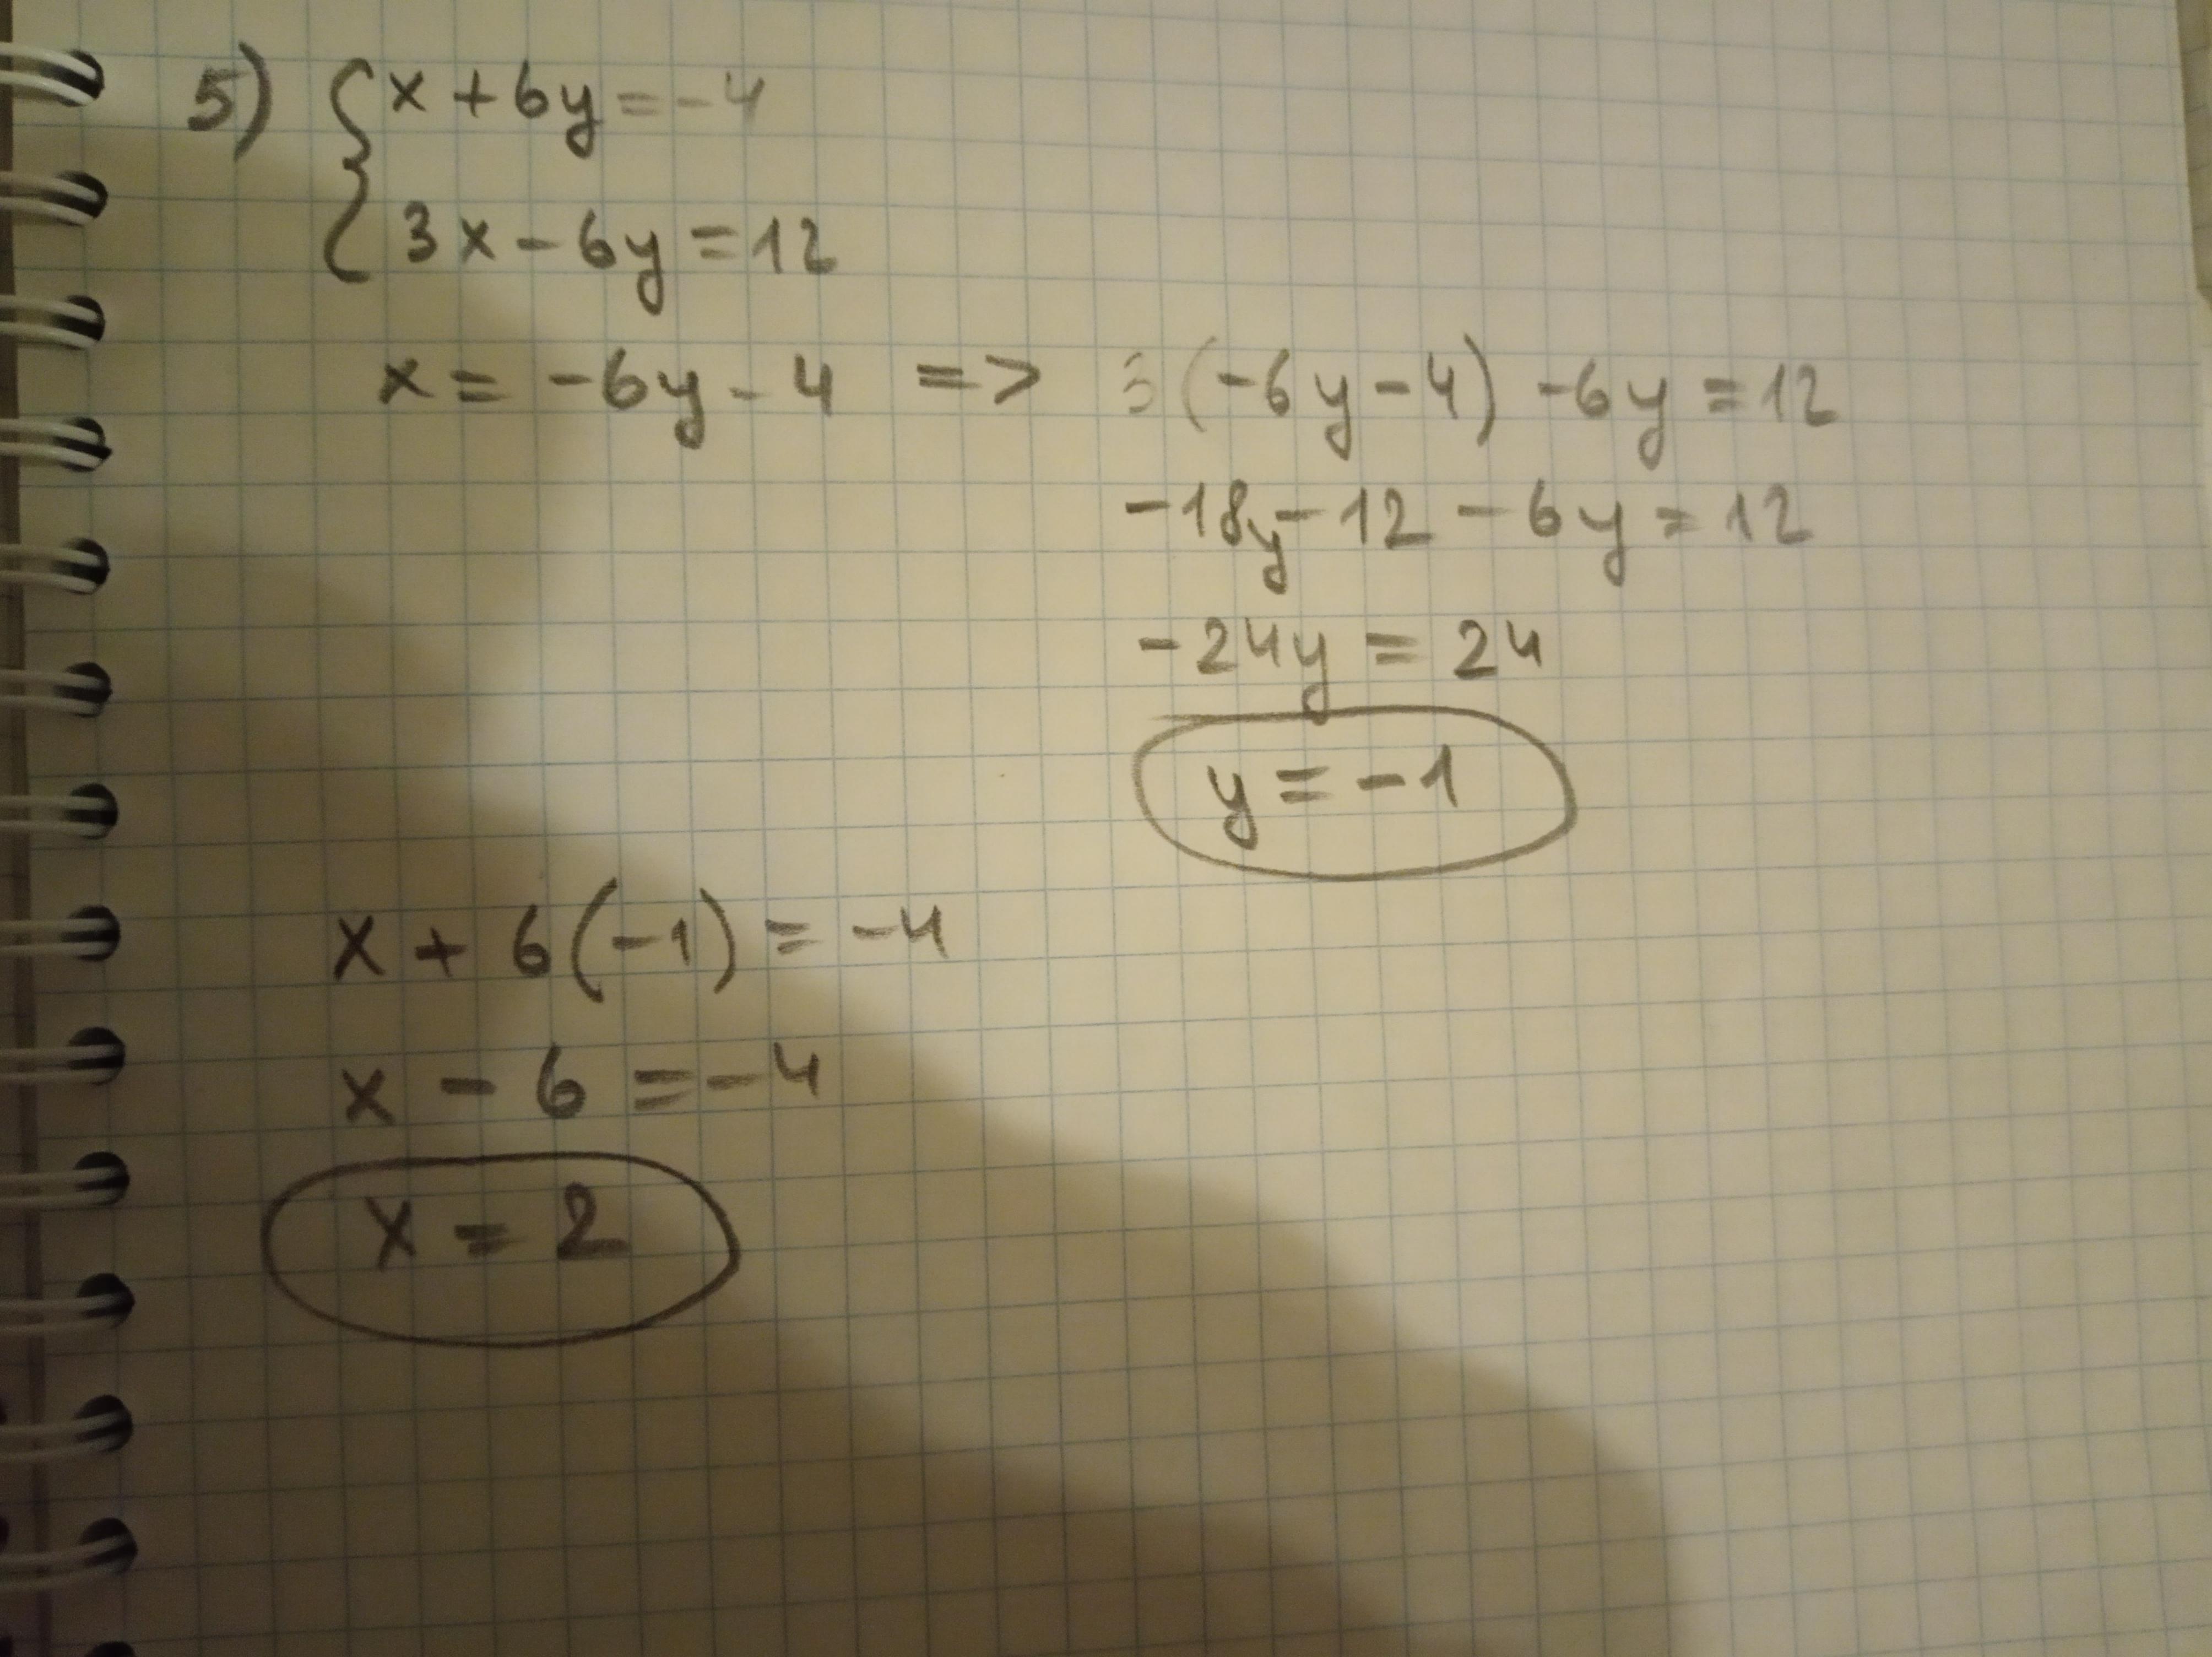 5) { x + 6y = -4
3x - 6y = 12
x = -6y - 4 => 3(-6y - 4) - 6y = 12
-18y - 12 - 6y = 12
-24y = 24
y = -1
x + 6(-1) = -4
x - 6 = -4
x = 2